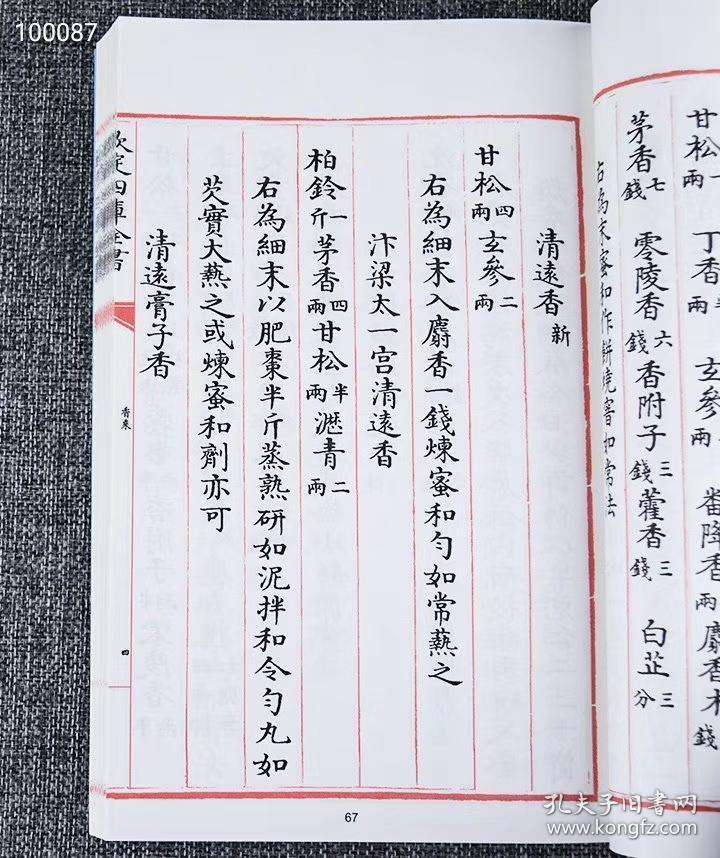 100087
甘松一兩
丁香半
玄參
兩
番降香
兩
麝香木
錢
茅香七錢 零陵香六錢 香附子三錢 藿香三錢 白芷三分
右為末蜜和作餅燒窨如常法
清遠香新
甘松四兩 玄參二兩
右為細末入麝香一錢煉蜜和勻如常爇之
汴梁太一宮清遠香
柏鈴一斤 茅香四兩 甘松半兩 瀝青二兩
右為細末以肥棗半斤蒸熟研如泥拌和令勻丸如
芡實大爇之或煉蜜和劑亦可
清遠膏子香
欽定四庫全書
香乘
四
67
孔夫子旧书网
www.kongfz.com